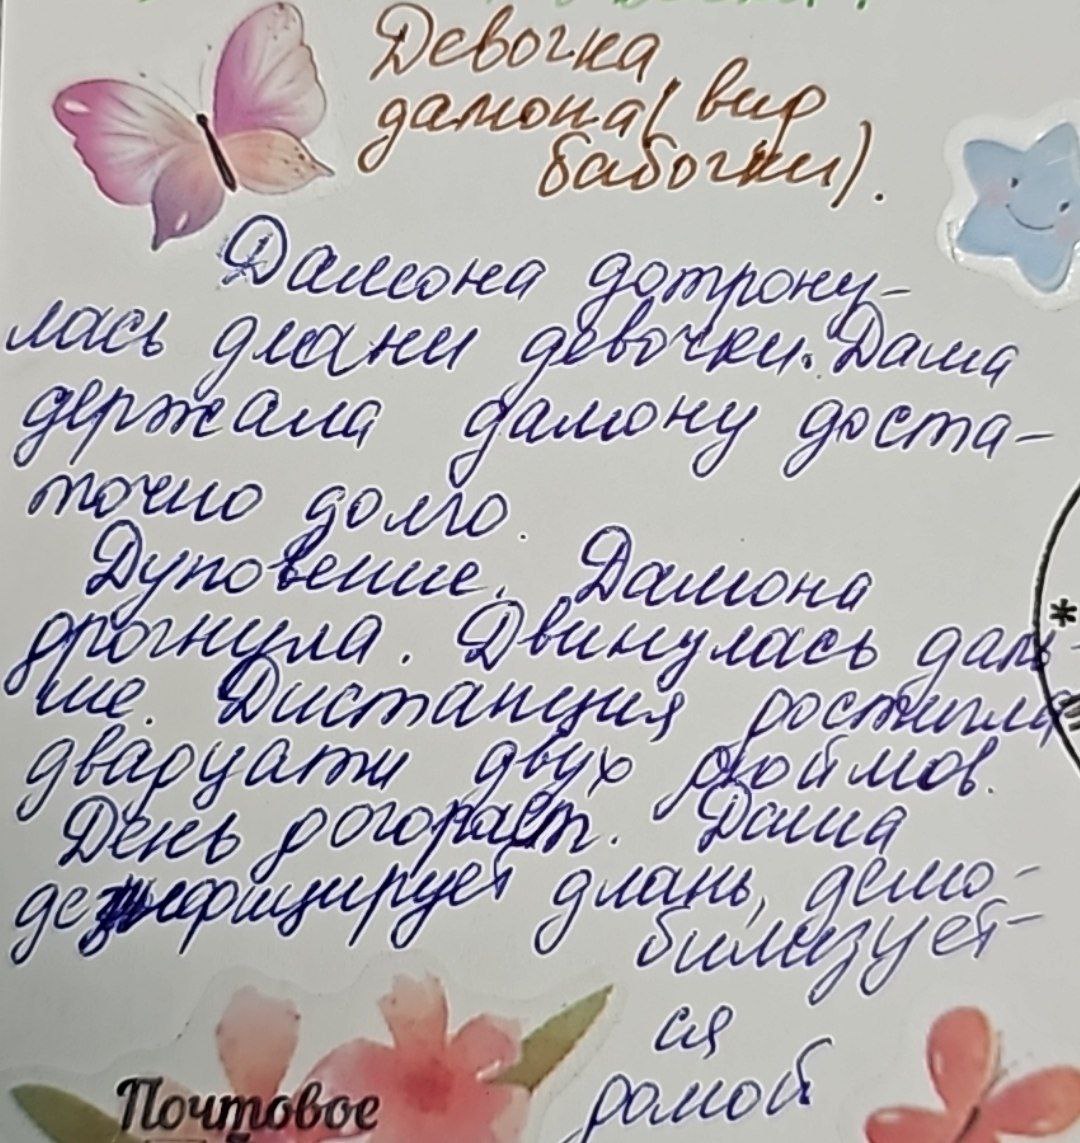 Девочка
дамона( вид
бабочки).
Дамона дотрону-
лась длани девочки. Даша
держала дамону доста-
точно долго.
Дуновение. Дамона
дрогнула. Двинулась даль-
ше. Дистанция достигла
двадцати двух дюймов.
День догорает. Даша
дезинфицирует длань, демо-
билизует-
ся
домой
Почтовое